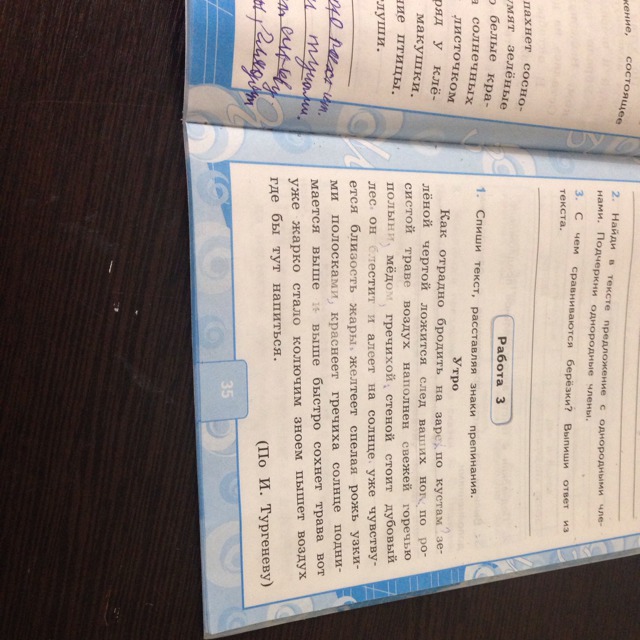 жение, состоящее
пахнет сосно-
умят зелёные
о белые кра-
в солнечных
листочком
ряд у клё-
макушки.
ние птицы.
луши.
2. Найди в тексте предложение с однородными чле-
нами. Подчеркни однородные члены.
3. С чем сравниваются берёзки? Выпиши ответ из
текста.
Работа 3
1. Спиши текст, расставляя знаки препинания.
Утро
Как отрадно бродить на заре, по кустам зе-
лёной чертой ложится след ваших ног, по ро-
систой траве воздух наполнен свежей горечью
полыни, мёдом, гречихой, стеной стоит дубовый
лес. он блестит и алеет на солнце. уже чувству-
ется близость жары. желтеет спелая рожь узки-
ми полосками, краснеет гречиха солнце подни-
мается выше и выше быстро сохнет трава вот
уже жарко стало колючим зноем пышет воздух
где бы тут напиться.
(По И. Тургеневу)
35